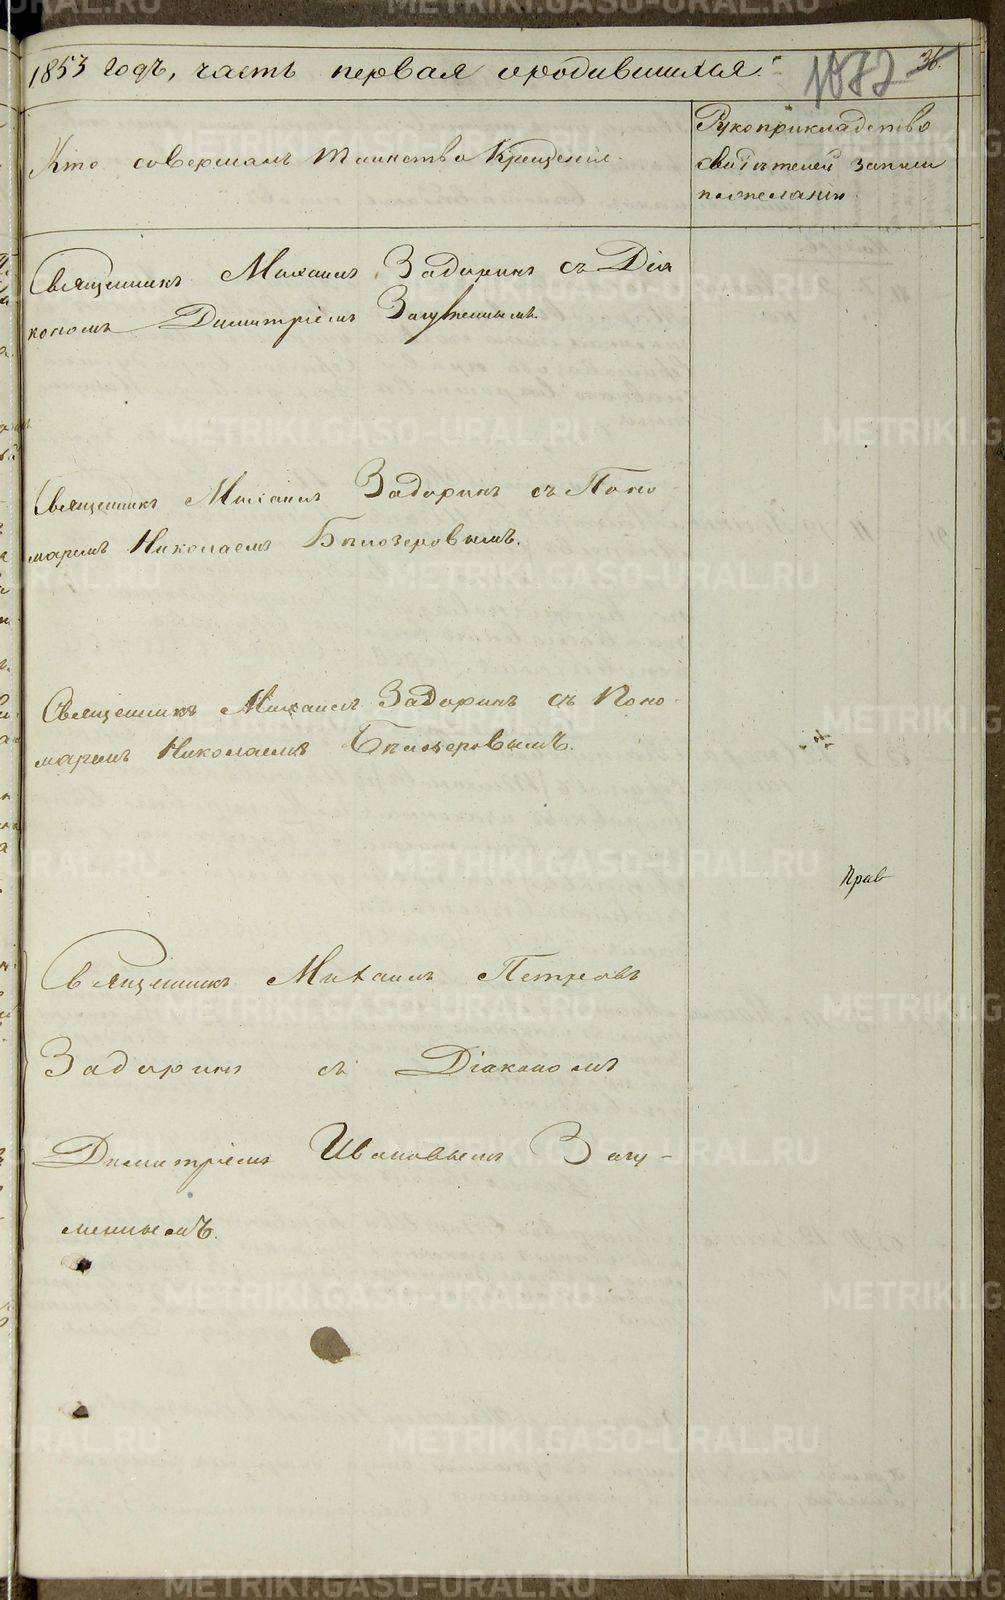 1853 годъ, часть первая ородившихся.
1072 36.
Кто совершалъ таинство Крещенія.
Рукоприкладство
свидѣтелей записи
пожеланію.
Священникъ Михаилъ Задоринъ съ Діа
кономъ Димитріемъ Загуменнымъ.
Священникъ Михаилъ Задоринъ съ Поно-
маремъ Николаемъ Бѣлозеровымъ.
Священникъ Михаилъ Задоринъ съ Поно-
маремъ Николаемъ Бѣлозеровымъ.
Прав
Священникъ Михаилъ Петровъ
Задоринъ съ Діакономъ
Димитріемъ Ивановымъ Загу-
меннымъ.
METRIKI.GASO-URAL.RU